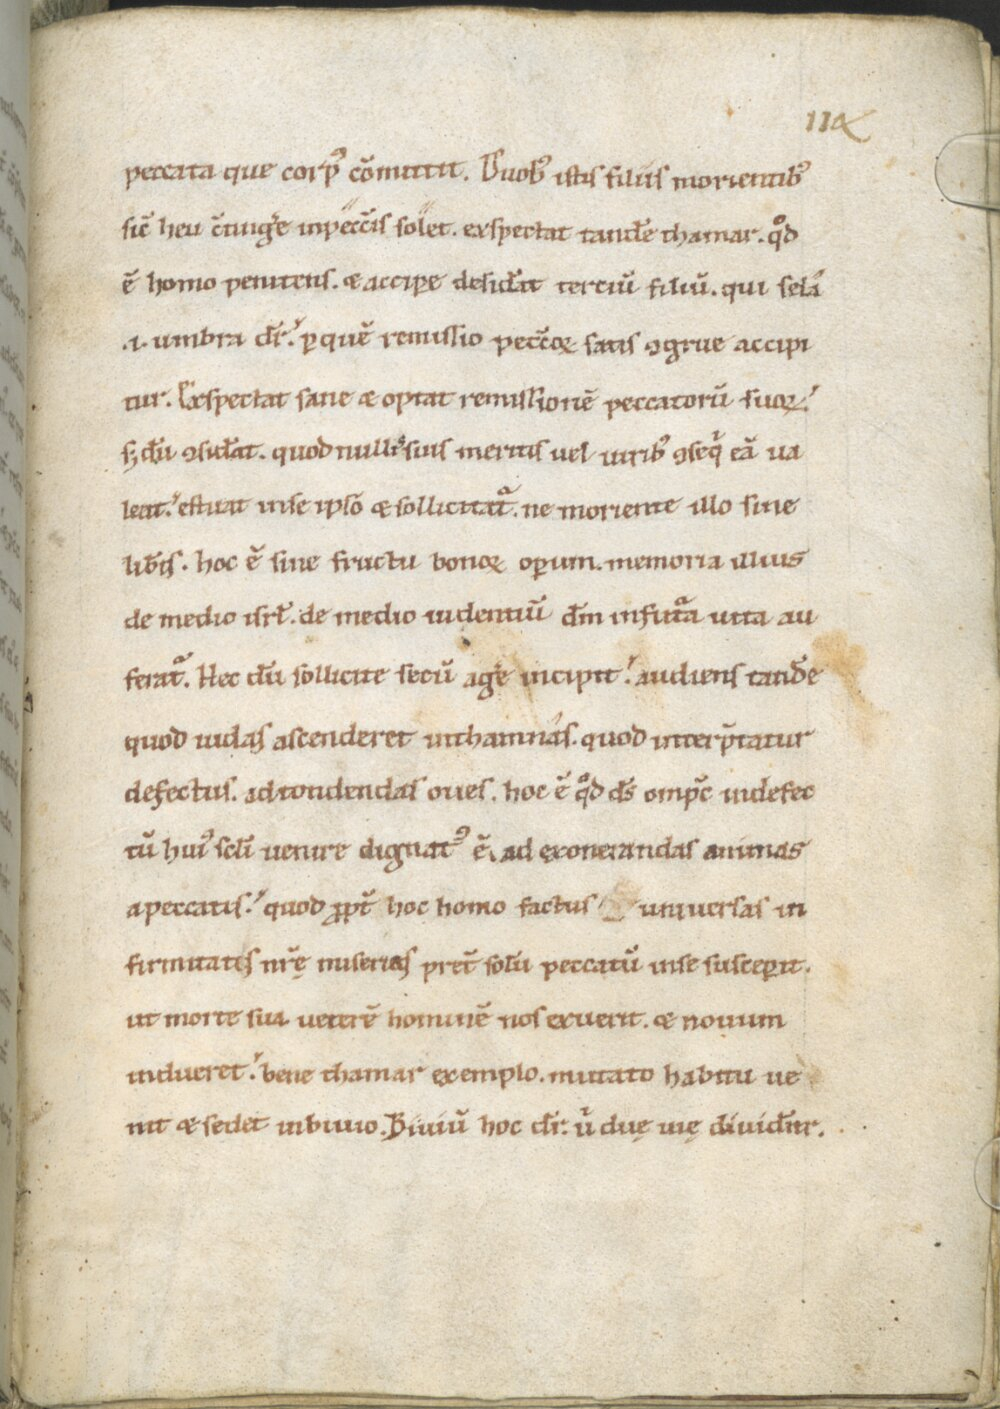 114
peccata que corpꝰ cōmittit. Duobꝫ istis filiis morientibꝫ
sic̄ heu c̄tinge̅ inpecc̄is solet. exspectat tande̅ thamar. qd̊
ē homo penitens. & accipe̅ desid̅at terciū filiū. qui sela̅
.i. umbra dr̄. ꝑ quē remissio pecc̄oꝝ satis ꝯgrue accipi
tur. Exspectat sane & optat remissionē peccatorū suoꝝ.
sꝫ dū ꝯsid̅at. quod nullis suis meritis uel uiribꝫ ꝯseqͥ eā ua
leat. estuat inse ipso & sollicitat᷑. ne moriente illo sine
lib̅is. hoc ē sine fructu bonoꝝ operum. memoria illius
de medio isrł. de medio uidentiū dm̄ infut᷑a uita au
ferat᷑. Hec dū sollicite secū age̅ incipit. audiens tande̅
quod iudas ascenderet inthamnas. quod interp̄tatur
defectus. ad tondendas oues. hoc ē qd̊ ds̄ omp̄c indefec
tū huiꝰ scl̄i uenire dignatꝰ ē. ad exonerandas animas
apeccatis. quod ꝓpt̄ hoc homo factus uniuersas in
firmitatis nr̄ę miserias p̄ret̄ solū peccatū inse susceperit.
ut morte sua ueterē hominē nos exuerit. & nouum
indueret. bene thamar exemplo. mutato habitu ue
nit & sedet inbiuio. Biuiū hoc dr̄. uͥ duę uię diuidn̄r.